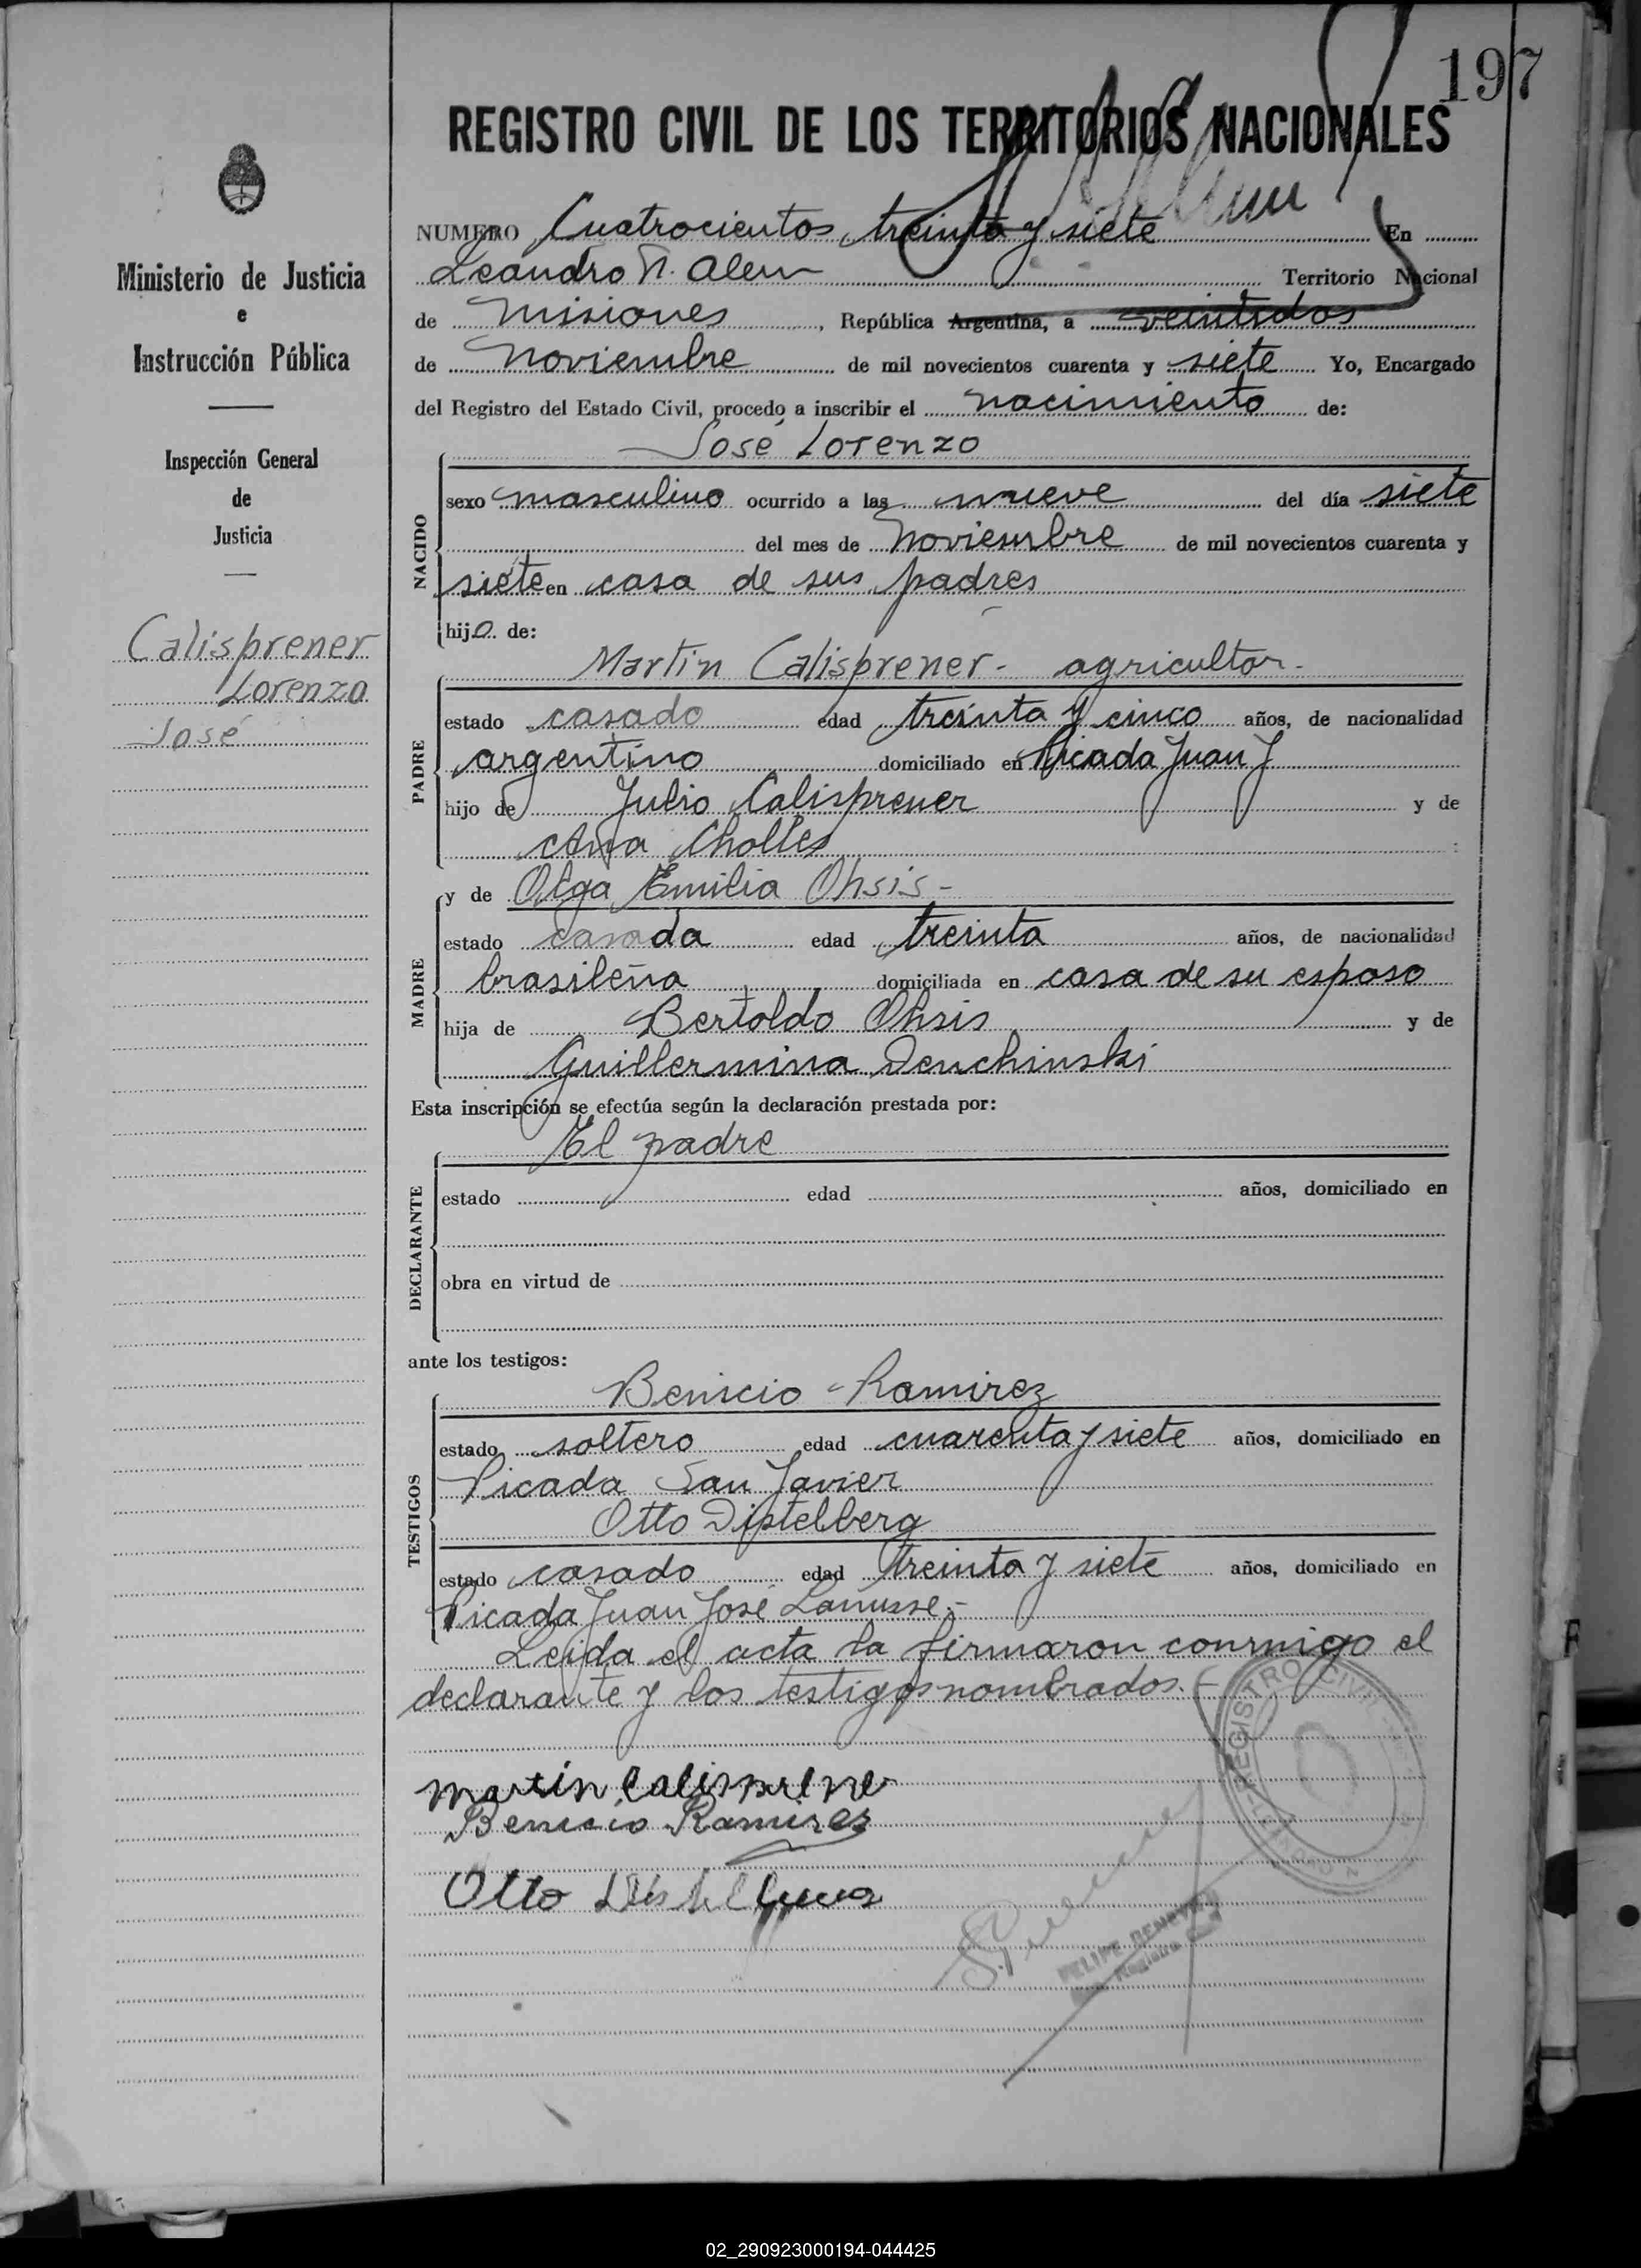 197
REGISTRO CIVIL DE LOS TERRITORIOS NACIONALES
Ministerio de Justicia
e
Instrucción Pública
Inspección General
de
Justicia
Calisprener
Lorenzo
José
NUMERO Cuatrocientos treinta y siete En
Leandro N. Alem Territorio Nacional
de Misiones, República Argentina, a veintidos
de Noviembre de mil novecientos cuarenta y siete Yo, Encargado
del Registro del Estado Civil, procedo a inscribir el nacimiento de:
José Lorenzo
NACIDO
sexo masculino ocurrido a las nueve del día siete
del mes de Noviembre de mil novecientos cuarenta y
siete en casa de sus padres
hijo de:
PADRE
Martin Calisprener - agricultor.
estado casado edad treinta y cinco años, de nacionalidad
argentino domiciliado en Picada Juan J
hijo de Julio Calisprener y de
Ana Cholles
MADRE
y de Olga Emilia Ohsis -
estado casada edad treinta años, de nacionalidad
brasileña domiciliada en casa de su esposo
hija de Bertoldo Ohsis y de
Guillermina Denchinski
Esta inscripción se efectúa según la declaración prestada por:
DECLARANTE
El padre
estado edad años, domiciliado en
obra en virtud de
ante los testigos:
TESTIGOS
Benicio Ramirez
estado soltero edad cuarenta y siete años, domiciliado en
Picada San Javier
Otto Distelberg
estado casado edad treinta y siete años, domiciliado en
Picada Juan José Lanusse.-
Leida el acta la firmaron conmigo el
declarante y los testigos nombrados. -
REGISTRO CIVIL
Martin Calisprener
Benicio Ramirez
Otto
FELIPE
Registro Civil
02_290923000194-044425